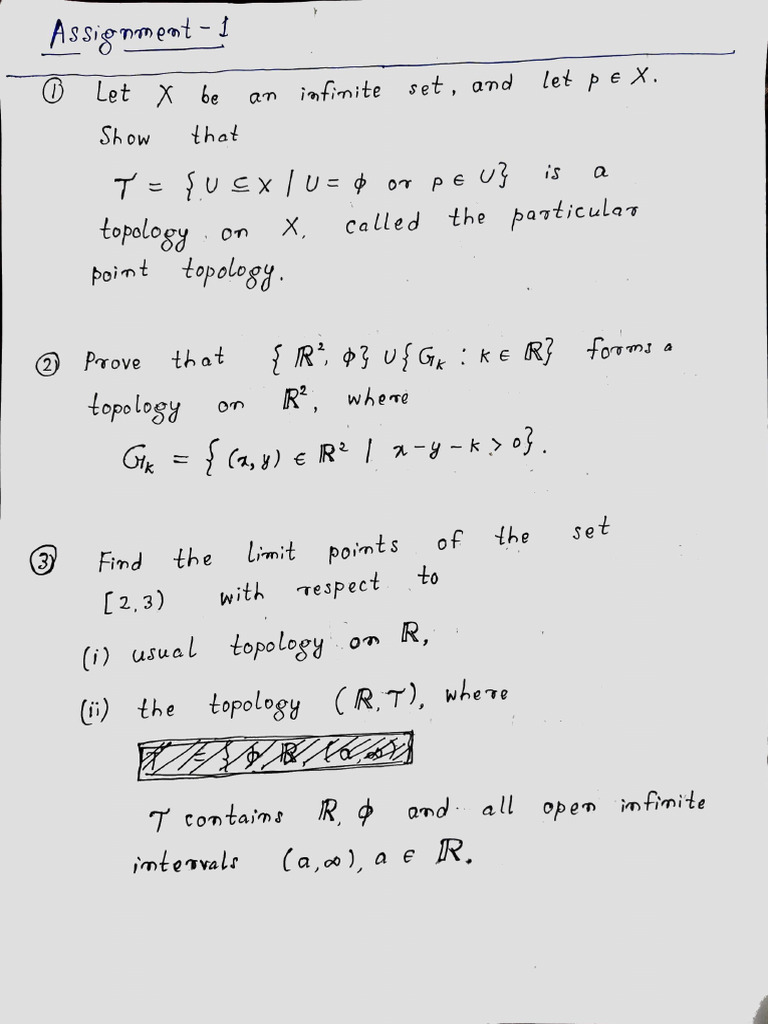 Assignment - 1
① Let X be an infinite set, and let p ∈ X.
Show that
T = {U ⊆ X | U = ϕ or p ∈ U} is a
topology on X, called the particular
point topology.
② Prove that {ℝ², ϕ} ∪ {G_k : k ∈ ℝ} forms a
topology on ℝ², where
G_k = {(x,y) ∈ ℝ² | x-y-k > 0}.
③ Find the limit points of the set
[2,3) with respect to
(i) usual topology on ℝ,
(ii) the topology (ℝ,T), where
T = {ϕ, ℝ, (a,∞)}
T contains ℝ, ϕ and all open infinite
intervals (a,∞), a ∈ ℝ.